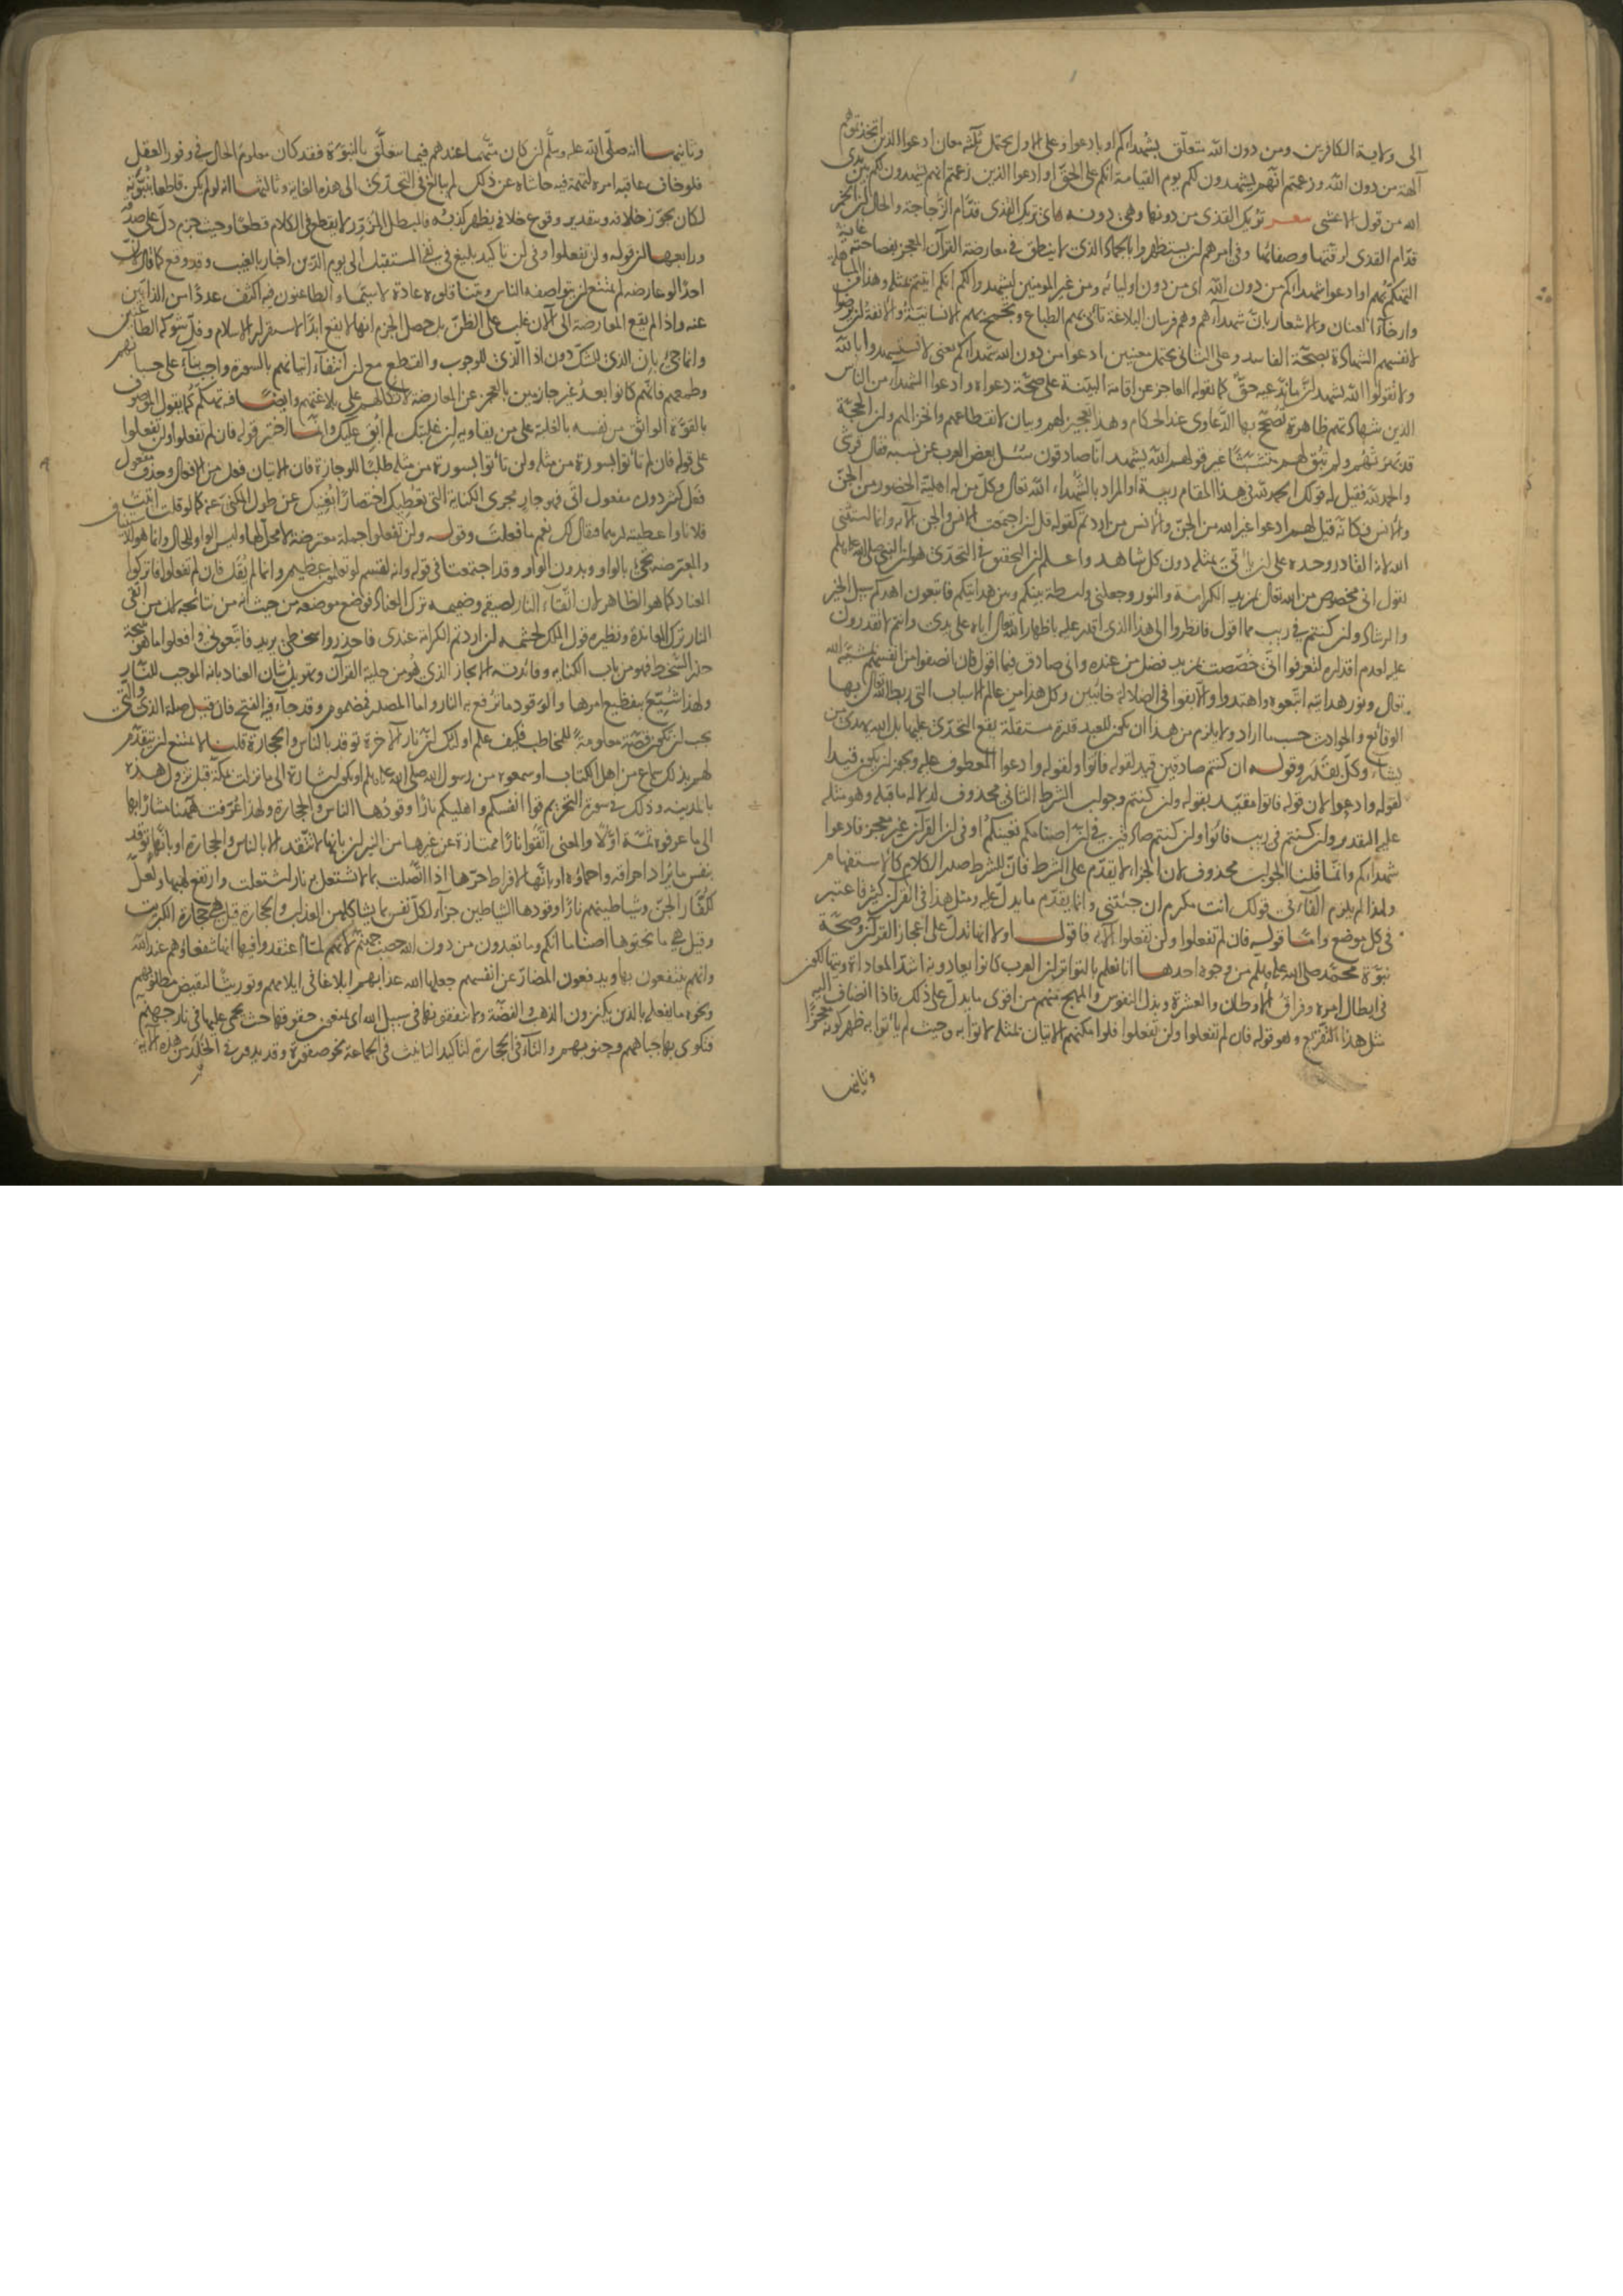 الى ولاية الكافرين ومن دون الله متعلق بشهداءكم او بادعوا وعلى الاول يحتمل ثلثه معان ادعوا الذين اتخذتموهم
آلهة من دون الله وزعمتم انهم يشهدون لكم يوم القيامة انكم على الحق او ادعوا الذين زعمتم انهم يشهدون لكم بين يدي
الله من قول الاعشى شعر تريك القذى من دونها وهي دونه اي تريك القذى قدام الزجاجة والحال ان الخمر
قدام القذى لرقتها وصفائها وفي امرهم ان يستظهروا بالجماد الذي لا ينطق في معارضة القرآن المعجز بفصاحته غاية
التهكم بهم او ادعوا شهداءكم من دون الله اي من دون اوليائه ومن غير المومنين ليشهدوا لكم انكم اتيتم بمثله وهذا من المساهلة
وارخاء العنان والاشعار بان شهداءهم وهم فرسان البلاغة تأبى بهم الطباع وتجمح بهم الانسانية والانفة ان يرضوا
لانفسهم الشهادة بصحة الفاسد وعلى الثاني يحتمل معنيين ادعوا من دون الله شهداءكم يعني لا تستشهدوا بالله
ولا تقولوا الله يشهد ان ما ندعيه حق كما يقوله العاجز عن اقامة البينة على صحة دعواه وادعوا الشهداء من الناس
الذين شهادتهم ظاهرة تصحح بها الدعاوى عند الحكام وهذا تعجيز لهم وبيان لانقطاعهم وانخزالهم وان الحجة
قد بهرتهم ولم تبق لهم متشبثا غير قولهم الله يشهد انا صادقون سئل بعض العرب عن نسبه فقال قرشي
والحمد لله فقيل له قولك الحمد لله في هذا المقام ريبة او المراد بالشهداء الله تعالى وكل من له اهلية الحضور من الجن
والانس فكانه قيل لهم ادعوا غير الله من الجن والانس من اردتم كقوله قل لئن اجتمعت الانس والجن الآية وانما استثنى
الله لانه القادر وحده على ان ياتي بمثله دون كل شاهد واعلم ان التحقيق في التحدي هو ان النبي صلى الله عليه وسلم
يقول اني مخصوص من الله تعالى بمزيد الكرامة والنور وجعلني واسطة بينكم وبين هدايتكم فاتبعون اهدكم سبيل الخير
والرشاد وان كنتم في ريب مما اقول فانظروا الى هذا الذي اقدر عليه باظهار الله تعالى اياه على يدي وانتم لا تقدرون
عليه لعدم اقداره لتعرفوا اني خصصت بمزيد فضل من عنده واني صادق فيما اقول فان انصفوا من انفسهم
تعالى ونور هدايته اتبعوه واهتدوا والا بقوا في الضلالة خائبين وكل هذا من عالم الاسباب التي ربط الله تعالى بها
الوقائع والحوادث حسب ما اراد ولا يلزم من هذا ان يكون للعبد قدرة مستقلة يقع التحدي عليها بل الله يهدي من
يشاء وكل بقدر وقوله ان كنتم صادقين قيد لقوله فاتوا ولقوله وادعوا المعطوف عليه ويجوز ان يكون قيدا
لقوله وادعوا لان قوله فاتوا مقيد بقوله وان كنتم وجواب الشرط الثاني محذوف لدلالة ما قبله وهو مثله
عليه التقدير وان كنتم في ريب فاتوا وان كنتم صادقين في ان اصنامكم تعينكم او في ان القرآن غير معجز فادعوا
شهداءكم وانما قلنا الجواب محذوف لان الجزاء لا يتقدم على الشرط فان للشرط صدر الكلام كالاستفهام
ولهذا لم يلزم الفاء في قولك انت مكرم ان جئتني وانما يقدم ما يدل عليه ومثل هذا في القرآن كثير فاعتبر
في كل موضع واما قوله فان لم تفعلوا ولن تفعلوا الآية فاقول اولا انها تدل على اعجاز القرآن وصحة
نبوة محمد صلى الله عليه وسلم من وجوه احدها انا نعلم بالتواتر ان العرب كانوا يعادونه اشد المعاداة
في ابطال امره وفراق الاوطان والعشيرة وبذل النفوس والمهج منهم من اقوى ما يدل على ذلك فاذا انضاف اليه
مثل هذا التقريع وهو قوله فان لم تفعلوا ولن تفعلوا فلو امكنهم الاتيان بمثله لاتوا به وحيث لم يأتوا به ظهر كونه معجزا
وثانيها
وثانيها انه صلى الله عليه وسلم ان كان متهما عندهم فيما يتعلق بالنبوة فقد كان معلوم الحال في وفور العقل
فلو خاف عاقبة امره لتهمة فيه حاشاه عن ذلك لم يبالغ في التحدي الى هذه الغاية وثالثها انه لو لم يكن قاطعا بنبوته
لكان يجوز خلافه وبتقدير وقوع خلافه يظهر كذبه فالمبطل المزور لا يقطع في الكلام قطعا وحيث جزم دل على صدقه
ورابعها ان قوله ولن تفعلوا وفي لن تاكيد بليغ في نفي المستقبل الى يوم الدين اخبار بالغيب وقد وقع كما قال لان
احدا لو عارضه لم يمتنع ان يتواصفه الناس ويتناقلوه عادة لا سيما والطاعنون فيه اكثف عددا من الذابين
عنه واذا لم يقع المعارضة الى الآن غلب على الظن بل حصل الجزم انها لا تقع ابدا لاستقرار الاسلام وقل شوكة الطاعنين
وانما جئ بان الذي للشك دون اذا الذي للوجوب والقطع مع ان انتفاء اتيانهم بالسورة واجب بناء على حسبانهم
وطمعهم فانهم كانوا بعد غير جازمين بالعجز عن المعارضة لاتكالهم على بلاغتهم وايضا فيه تهكم كما يقول الموصوف
بالقوة الواثق من نفسه بالغلبة على من يقاويه ان غلبتك لم ابق عليك وانما اختير قوله فان لم تفعلوا ولن تفعلوا
على قوله فان لم تأتوا بسورة من مثله ولن تأتوا بسورة من مثله طلبا للوجازة فان الاتيان فعل من الافعال وحذف مفعول
فعل كثير دون مفعول اتى فهو جار مجرى الكناية التي تعطيك اختصارا يغنيك عن طول المكني عنه كما لو قلت اتيت
فلانا واعطيته درهما فقال لك نعم ما فعلت وقوله ولن تفعلوا جملة معترضة لا محل لها وليس الواو للحال وانما هو للاستيناف
والمعترضة تجئ بالواو وبدون الواو وقد اجتمعتا في قوله وانه لقسم لو تعلمون عظيم وانما لم يقل فان لم تفعلوا فاتركوا
العناد كما هو الظاهر لان اتقاء النار لصيقه وضميمه ترك العناد فوضع موضعه من حيث انه من نتائجه لان من اتقى
النار ترك المعاندة ونظيره قول الملك لحشمه ان اردتم الكرامة عندي فاحذروا سخطي يريد فاتبعوني وافعلوا ما هو نتيجة
حذر السخط فهو من باب الكناية وفائدته الايجاز الذي هو من حلية القرآن وتهويل شان العناد بانه الموجب للنار
ولهذا شيع بتفظيع امرها والوقود ما ترفع به النار واما المصدر فمضموم وقد جاء فيه الفتح فان قيل صلة الذي والتي
يجب ان تكون قصة معلومة للمخاطب فكيف علم اولئك ان نار الآخرة توقد بالناس والحجارة قلنا لا يمتنع ان يتقدم
لهم بذلك سماع من اهل الكتاب او سمعوه من رسول الله صلى الله عليه وسلم او يكون اشارة الى ما نزلت بمكة قبل نزول هذه
بالمدينة وذلك في سورة التحريم قوا انفسكم واهليكم نارا وقودها الناس والحجارة ولهذا عرفت ههنا مشارا بها
الى ما عرفوه ثمة اولا والمعنى اتقوا نارا ممتازة عن غيرها من النيران بانها لا تتقد الا بالناس والحجارة او بانها توقد
بنفس ما يراد احراقه واحماؤه او بانها لافراط حرها اذا اتصلت بما لا تشتعل به نار اشتعلت وارتفع لهبها ولعل
لكفار الجن وشياطينهم نارا وقودها الشياطين جزاء لكل نفس بما يشاكله من العذاب والحجارة قيل هي حجارة الكبريت
وقيل هي ما نحتوها اصناما انكم وما تعبدون من دون الله حصب جهنم لانهم لما اعتقدوا فيها انها شفعاؤهم عند الله
وانهم ينتفعون بها ويدفعون المضار عن انفسهم جعلها الله عذابهم ابلاغا في ايلامهم وتوريثا لنقيض مطلوبهم
ونحوه ما يفعله بالذين يكنزون الذهب والفضة ولا ينفقونها في سبيل الله اي يمنعون حقوقها حيث يحمى عليها في نار جهنم
فتكوى بها جباههم وجنوبهم والتاء في الحجارة لتاكيد التانيث في الجماعة نحو صقورة وقد يدور في الخلد من هذه الآية